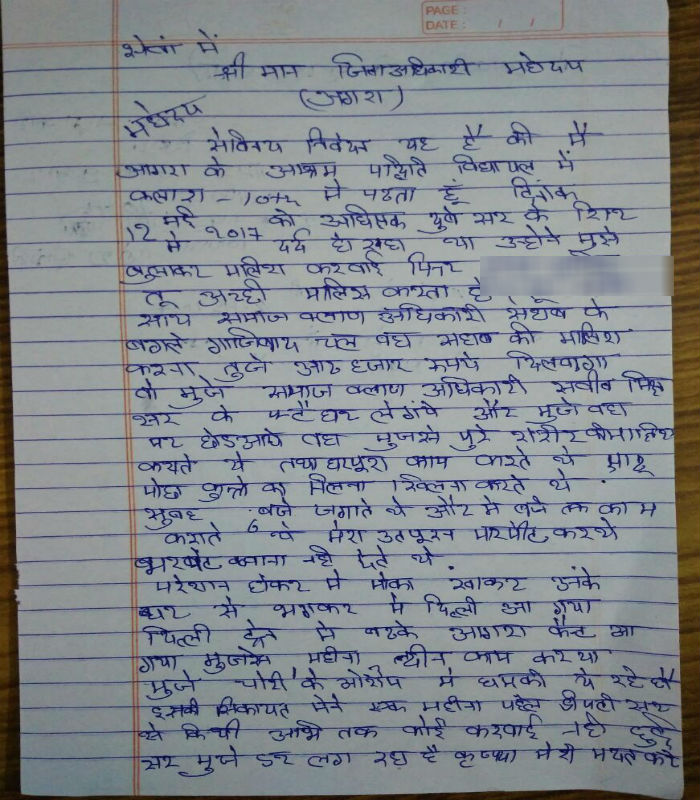 PAGE :
DATE : / /
सेवा में
श्री मान जिलाअधिकारी महोदय
(आगरा)
महोदय
सेविनय निवेदन यह है की मै
आगरा के आश्रम पद्धिति विद्यायल में
कलास - 10th मे पढता हूं दिनाक
12 मई 2017 को अधिक्षक दुबे सर के शिर
मे दर्द हो रहा था उन्होने मुझे
बुलाकर मालिश करवाई फिर
तू अच्छी मालिस करता है
साथ समाज कलाण अधिकारी सहाब के
बगले गाजिबाद चल वहा सहाब की मालिश
करना तुजे आठ हजार रूपये दिलवागा
वो मुजे समाज कलाण अधिकारी सजीव सिह
सर के घर लेगये और मुजे वहा
पर छोडआये वहा मुजसे पुरे शरीर की मालिश
कराते थे तथा घरपुरा काम करते थे झाडू
पोछा कुत्तो का
सुबह 6 बजे जगाते थे और बजे तक काम
कराते थे मेरा उतपूरन मारपीट करथे
भरपेट खाना नही देते थे .
परेशान होकर मे मोका खाकर उनके
घर से भागकर मे दिल्ली आ गया
दिल्ली ट्रेन मे आगरा कैन्ट आ
गया मुजसे महीना तीन काम करया
मुजे चोरी के आरोप मे धमकी दे रहे है
इसकी सिकायत मेने एक महीना पहले डीपटी सर
से किथी आभी तक कोई करवाई नही हुई
सर मुजे डर लग रहा है कृप्या मेरी मदत करे